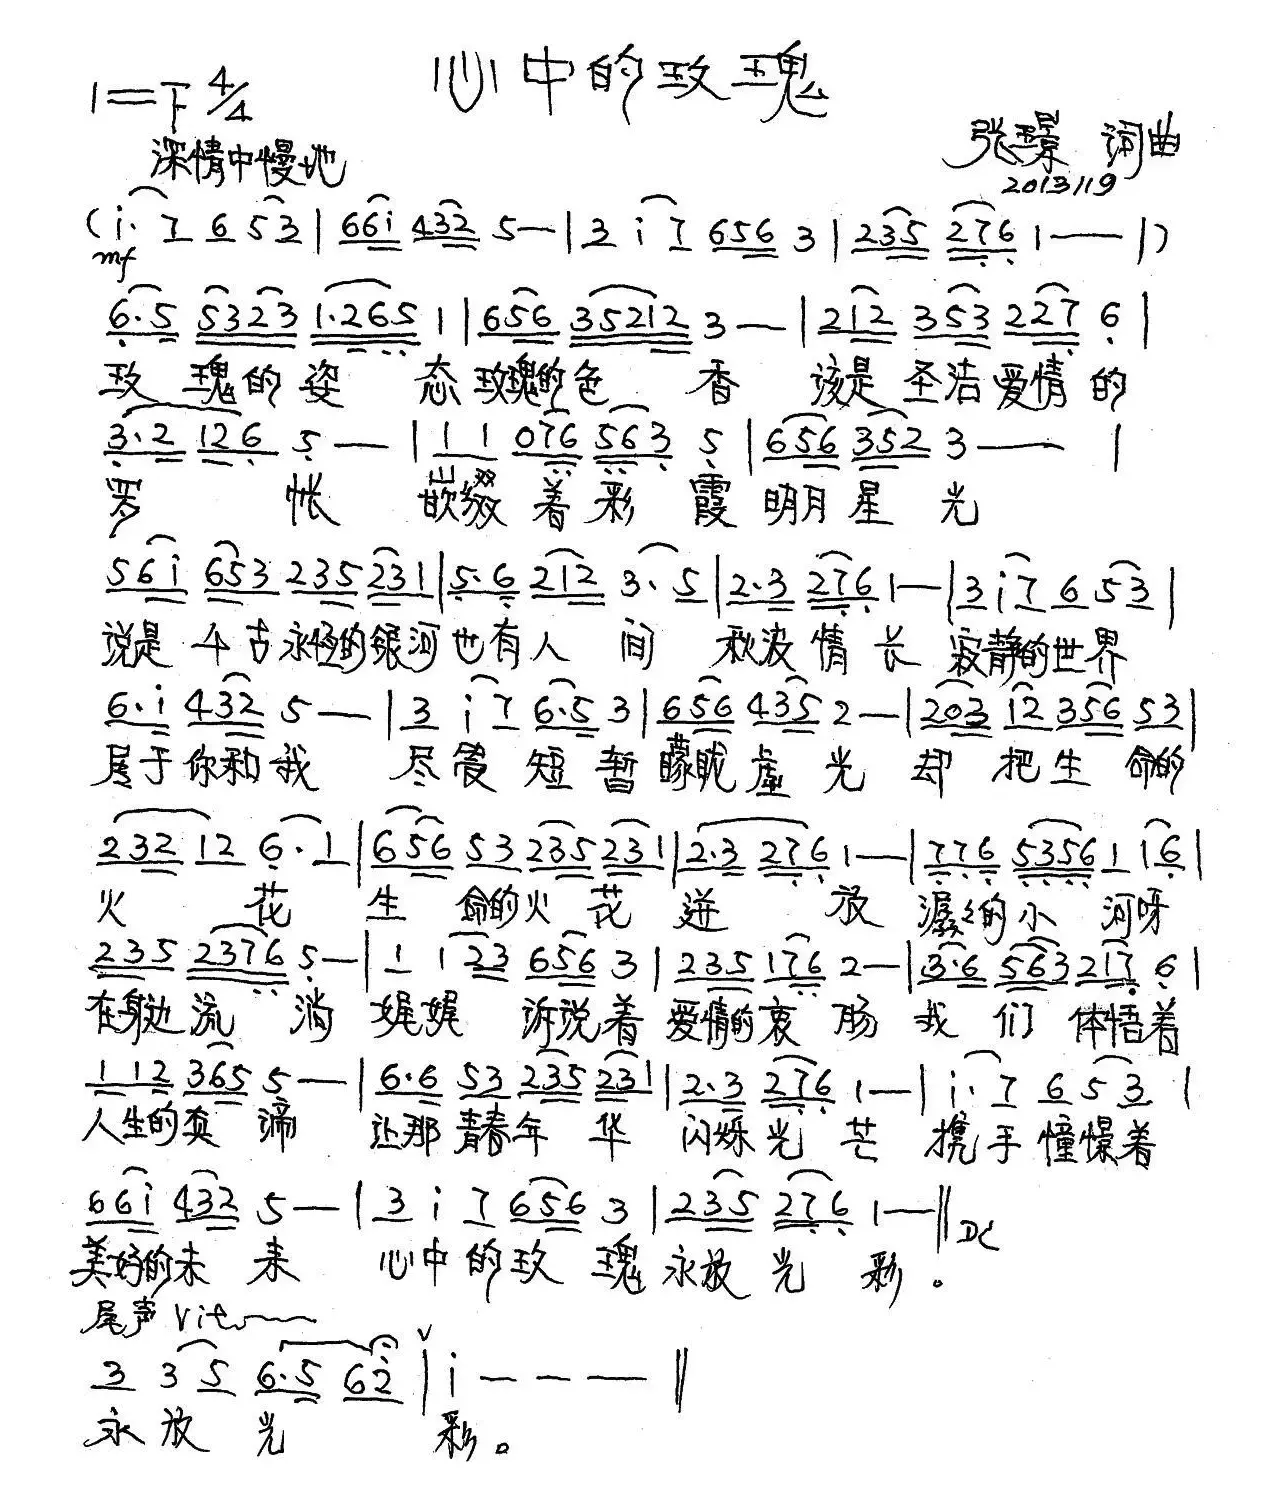 心中的玫瑰
1=F 4/4
深情中慢地
张璟 词曲
2013119
(i· 7 6 5 3 | 6 6 i 4 3 2 5 — | 3 i 7 6 5 6 3 | 2 3 5 2 7 6 1 — — |)
mf
6·5 5323 1·265 1 | 656 35212 3 — | 212 353 227 6 |
玫瑰的姿态玫瑰的色香该是圣洁爱情的
3·2 126 5 — | 1 1 076 563 5 | 656 352 3 — — |
罗帐嵌缀着彩霞明月星光
56i 653 235 231 | 5·6 212 3·5 | 2·3 276 1 — | 3 i 7 6 5 3 |
说是千古永恒的银河也有人间秋波情长寂静的世界
6·i 432 5 — | 3 i 7 6·5 3 | 656 435 2 — | 203 12 356 53 |
属于你和我尽管短暂朦胧虚光却把生命的
232 12 6·1 | 656 53 235 231 | 2·3 276 1 — | 776 5356 1 16 |
火花生命的火花迸放潺潺的小河呀
235 2376 5 — | 1 1 23 656 3 | 235 176 2 — | 3·6 563 217 6 |
在身边流淌娓娓诉说着爱情的衷肠我们体悟着
1 12 365 5 — | 6·6 53 235 231 | 2·3 276 1 — | i·7 6 5 3 |
人生的真谛让那青春年华闪烁光芒携手憧憬着
66i 432 5 — | 3 i 7 656 3 | 235 276 1 — ‖ DC
美好的未来心中的玫瑰永放光彩。
尾声 Vit
3 3 5 6·5 62 | i — — — ‖
永放光彩。